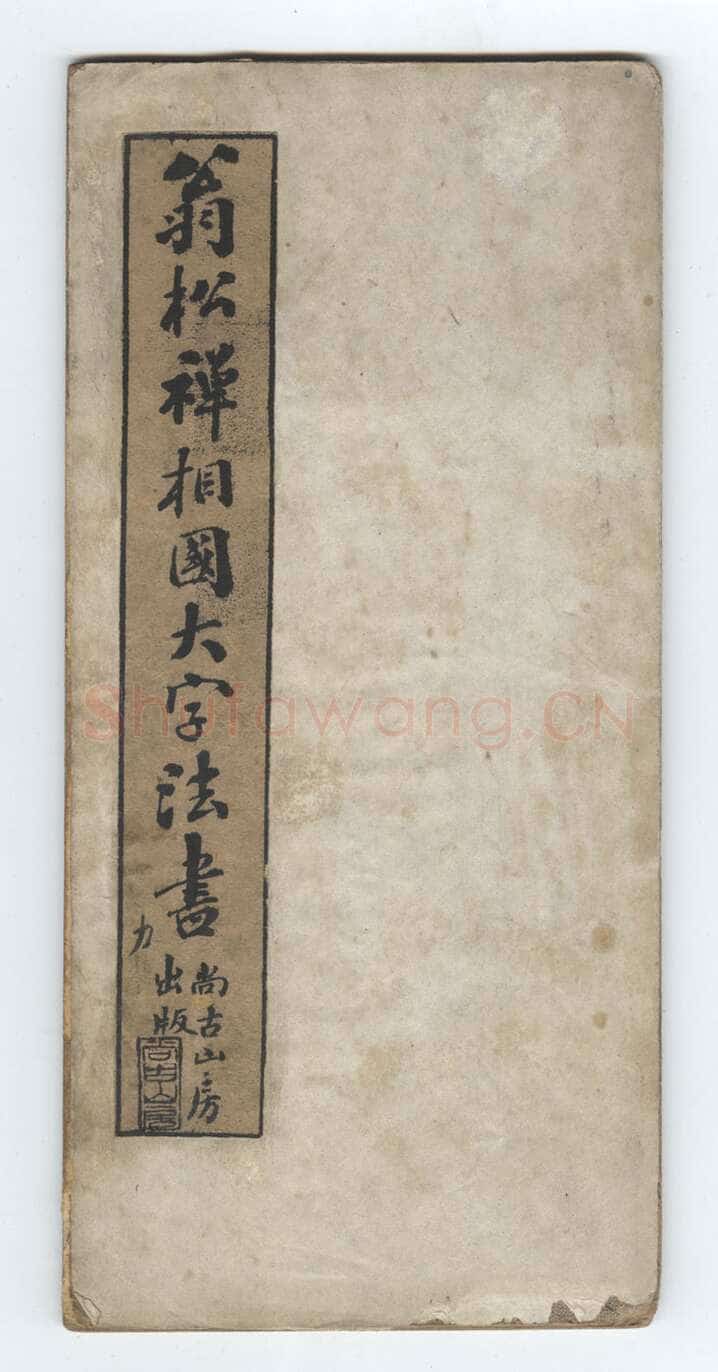 翁松禅相國大字法書
力
尚古山房
出版
尚古山房
Shufawang.CN